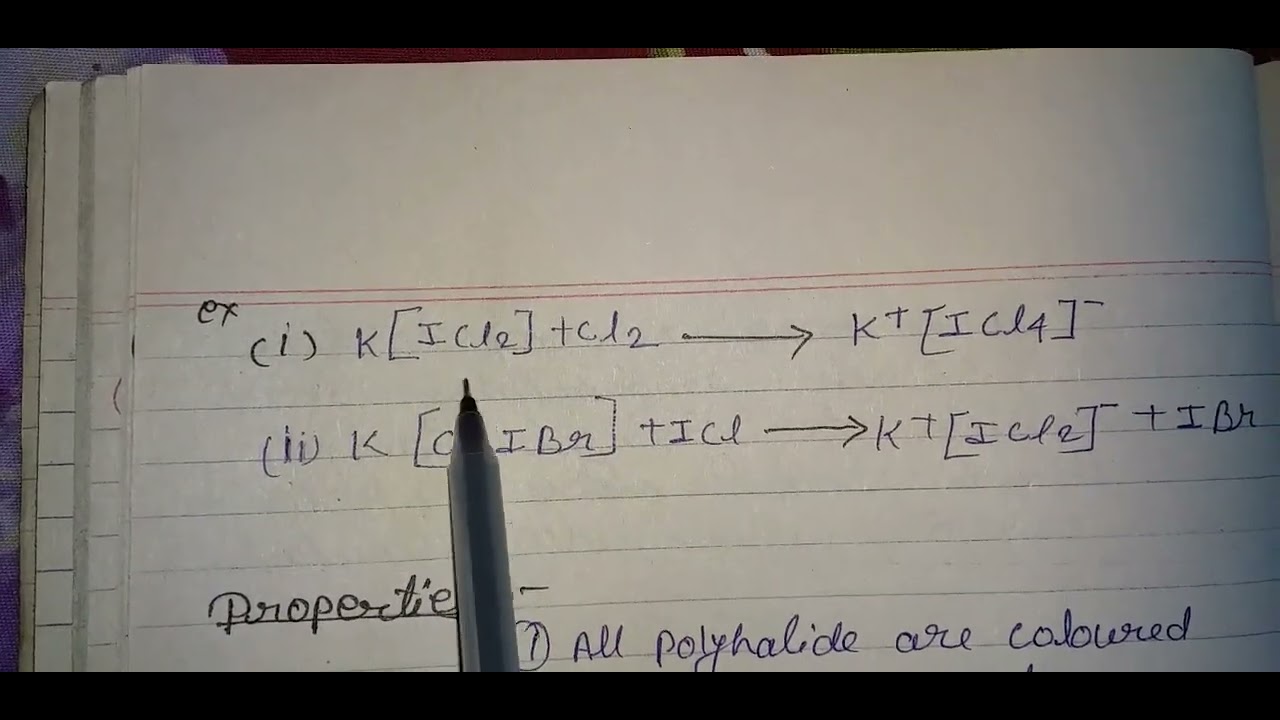 ex
(i) K[ICl2] + Cl2 ⟶ K+[ICl4]-
(ii) K [ IBr] + ICl ⟶ K+[ICl2]- + IBr
Propertie -
① All polyhalide are coloured